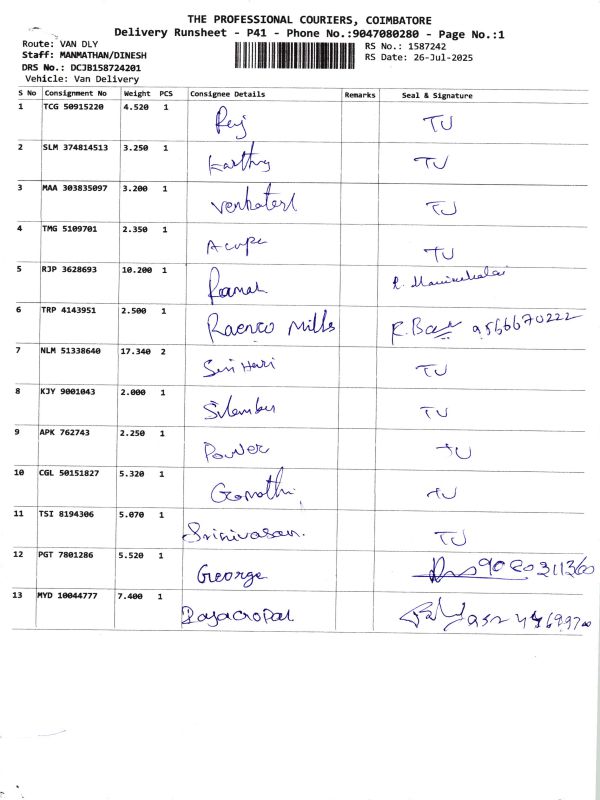 THE PROFESSIONAL COURIERS, COIMBATORE
Delivery Runsheet - P41 - Phone No.:9047080280 - Page No.:1
Route: VAN DLY
RS No.: 1587242
Staff: MANMATHAN/DINESH
RS Date: 26-Jul-2025
DRS No.: DCJB158724201
Vehicle: Van Delivery
S No Consignment No Weight PCS Consignee Details Remarks Seal & Signature
1 TCG 50915220 4.520 1 Raj TU
2 SLM 374814513 3.250 1 TU
3 MAA 303835097 3.200 1 TU
4 TMG 5109701 2.350 1 TU
5 RJP 3628693 10.200 1 Raman
6 TRP 4143951 2.500 1 Raenco Mills 9566670222
7 NLM 51338640 17.340 2 Sri Hari TU
8 KJY 9001043 2.000 1 TU
9 APK 762743 2.250 1 Power TU
10 CGL 50151827 5.320 1 Gomathi TU
11 TSI 8194306 5.070 1 Srinivasan. TU
12 PGT 7801286 5.520 1 George
13 MYD 10044777 7.400 1 Rajagopal